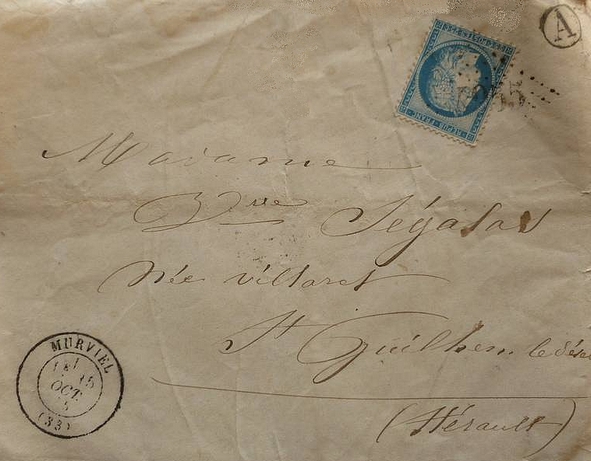 A
Madame
Vve Ségalas
Née villaret
St Guilhem le dése
(Hérault)
MURVIEL
15
OCT.
(33)